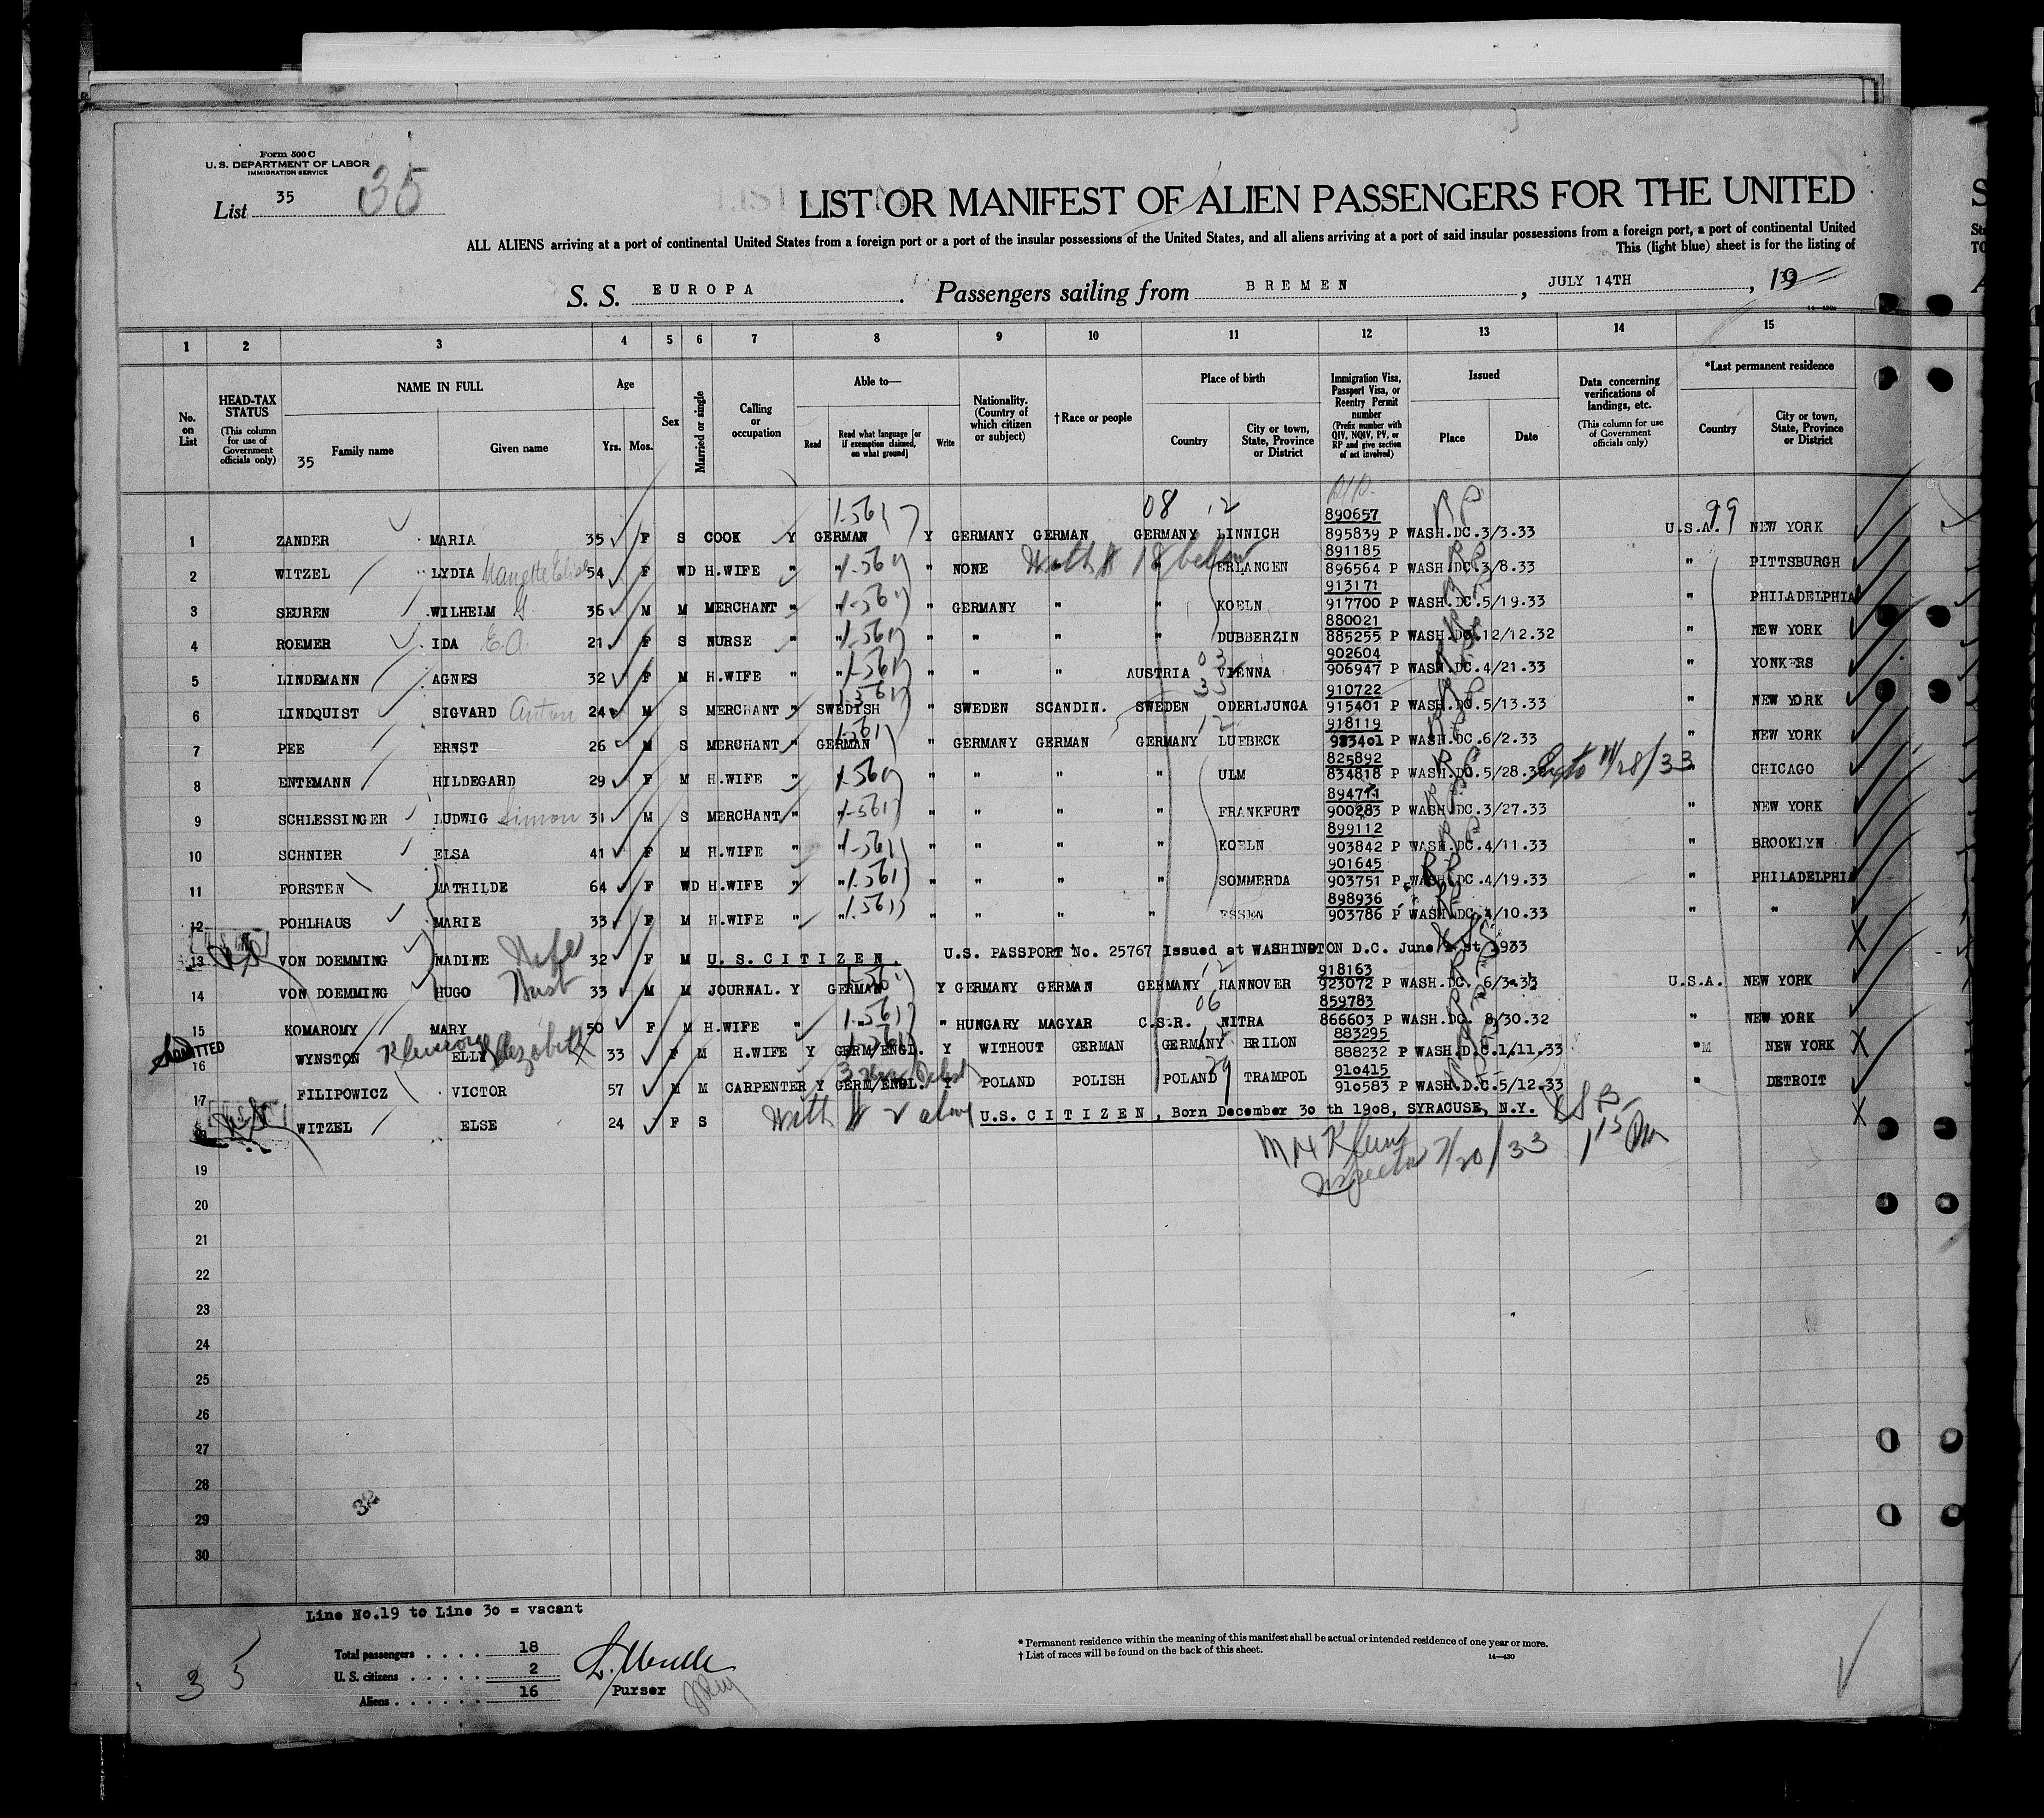 Form 500 C
U. S. DEPARTMENT OF LABOR
IMMIGRATION SERVICE
List 35 35
LIST OR MANIFEST OF ALIEN PASSENGERS FOR THE UNITED
ALL ALIENS arriving at a port of continental United States from a foreign port or a port of the insular possessions of the United States, and all aliens arriving at a port of said insular possessions from a foreign port, a port of continental United
This (light blue) sheet is for the listing of
S. S. EUROPA. Passengers sailing from BREMEN, JULY 14TH, 19
1 2 3 4 5 6 7 8 9 10 11 12 13 14 15
No. on List
HEAD-TAX STATUS (This column for use of Government officials only)
NAME IN FULL
35 Family name Given name
Age
Yrs. Mos.
Sex
Married or single
Calling or occupation
Able to—
Read Read what language [or if exemption claimed, on what ground] Write
Nationality. (Country of which citizen or subject)
†Race or people
Place of birth
Country City or town, State, Province or District
Immigration Visa, Passport Visa, or Reentry Permit number (Prefix number with QIV, NQIV, PV, or RP and give section of act involved)
Issued
Place Date
Data concerning verifications of landings, etc. (This column for use of Government officials only)
*Last permanent residence
Country City or town, State, Province or District
08 12 99
890657
1 ZANDER MARIA 35 F S COOK Y GERMAN Y GERMANY GERMAN GERMANY LINNICH 895839 P WASH.DC.3/3.33 U.S.A. NEW YORK
With # 18 below
891185
2 WITZEL LYDIA 54 F WD H.WIFE " " " NONE ERLANGEN 896564 P WASH.DC.3/8.33 " PITTSBURGH
913171
3 SEUREN WILHELM G 36 M M MERCHANT " " " GERMANY " " KOELN 917700 P WASH.DC.5/19.33 " PHILADELPHIA
880021
4 ROEMER IDA E.A. 21 F S NURSE " " " " " " DUBBERZIN 885255 P WASH.DC.12/12.32 " NEW YORK
902604
5 LINDEMANN AGNES 32 F M H.WIFE " " " " " AUSTRIA VIENNA 906947 P WASH.DC.4/21.33 " YONKERS
910722
6 LINDQUIST SIGVARD Anton 24 M S MERCHANT " SWEDISH " SWEDEN SCANDIN. SWEDEN ODERLJUNGA 915401 P WASH.DC.5/13.33 " NEW YORK
918119
7 PEE ERNST 26 M S MERCHANT " GERMAN " GERMANY GERMAN GERMANY LUEBECK 923401 P WASH.DC.6/2.33 " NEW YORK
825892
8 ENTEMANN HILDEGARD 29 F M H.WIFE " " " " " ULM 834818 P WASH.DC.5/28.3 11/28/33 " CHICAGO
9 SCHLESSINGER LUDWIG Simon 31 M S MERCHANT " " " " " " FRANKFURT 900283 P WASH.DC.3/27.33 " NEW YORK
899112
10 SCHNIER ELSA 41 F M H.WIFE " " " " " " KOELN 903842 P WASH.DC.4/11.33 " BROOKLYN
901645
11 FORSTEN MATHILDE 64 F WD H.WIFE " " " " " " SOMMERDA 903751 P WASH.DC.4/19.33 " PHILADELPHIA
898936
12 POHLHAUS MARIE 33 F M H.WIFE " " " " " " ESSEN 903786 P WASH.DC.4/10.33 " "
13 VON DOEMMING NADINE Wife 32 F M U.S.CITIZEN. U.S. PASSPORT No. 25767 Issued at WASHINGTON D.C. June 1st 1933
918163
14 VON DOEMMING HUGO Hust 33 M M JOURNAL. Y GERMAN Y GERMANY GERMAN GERMANY HANNOVER 923072 P WASH.DC. 6/3.33 U.S.A. NEW YORK
859783
15 KOMAROMY MARY 50 F M H.WIFE " " " HUNGARY MAGYAR C.S.R. NITRA 866603 P WASH.DC. 8/30.32 " NEW YORK
ADMITTED
883295
16 WYNSTON ELLY Elizabeth 33 F M H.WIFE Y GERM/ENGL. Y WITHOUT GERMAN GERMANY BRILON 888232 P WASH.D.C.1/11.33 " NEW YORK
910415
17 FILIPOWICZ VICTOR 57 M M CARPENTER Y GERM/ENGL. Y POLAND POLISH POLAND TRAMPOL 910583 P WASH.D.C.5/12.33 " DETROIT
WITZEL ELSE 24 F S With # 2 above U.S. CITIZEN, Born December 30 th 1908, SYRACUSE, N.Y.
M H Klein
Inspector 7/20/33 1 15 PM
19
20
21
22
23
24
25
26
27
28
29
30
32
Line No.19 to Line 30 = vacant
Total passengers . . . . 18
U. S. citizens . . . . . 2
Aliens . . . . . . 16
Purser
35
* Permanent residence within the meaning of this manifest shall be actual or intended residence of one year or more.
† List of races will be found on the back of this sheet.
14—430